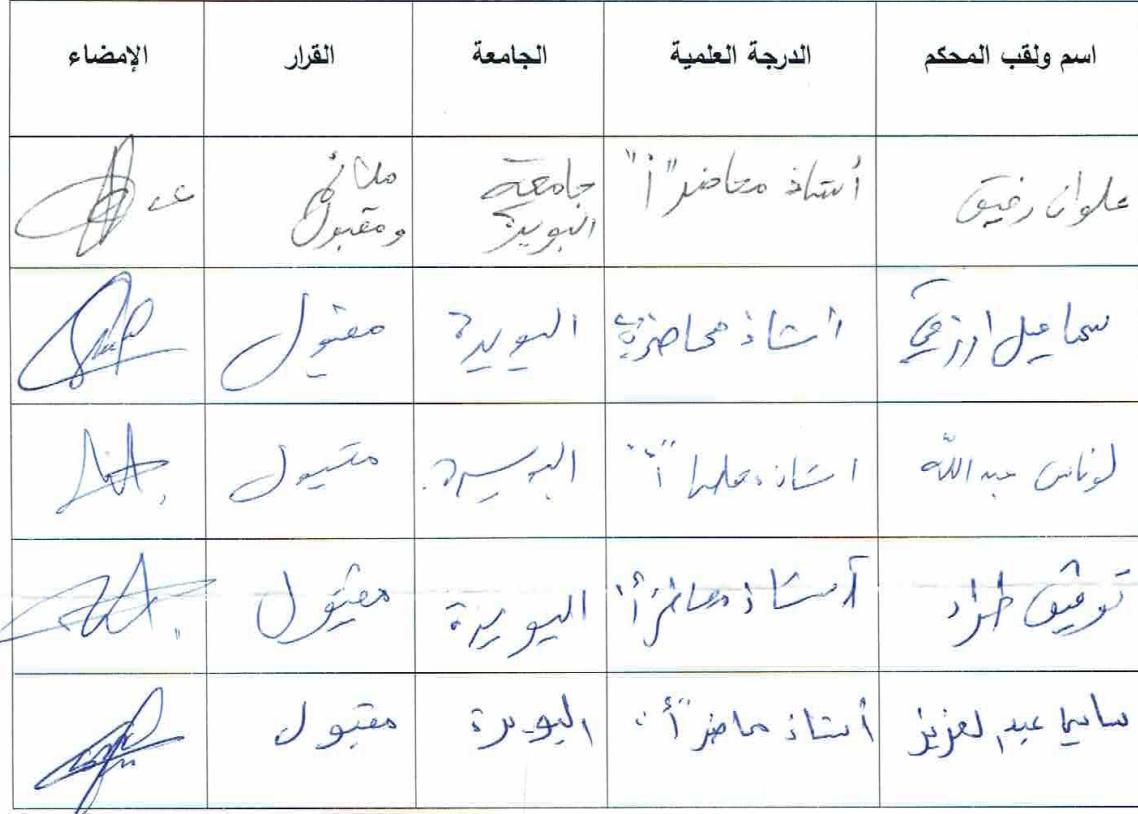 اسم ولقب المحكم الدرجة العلمية الجامعة القرار الإمضاء
علوان رفيق أستاذ محاضر "أ" جامعة البويرة ملائم ومقبول
سماعيل ارزقي استاذ محاضر البويرة مقبول
لوناس عبد الله استاذ محاضر "أ" البويرة مقبول
توفيق طراد أستاذ محاضر "أ" البويرة مقبول
ساسي عبد العزيز أستاذ محاضر "أ" البويرة مقبول